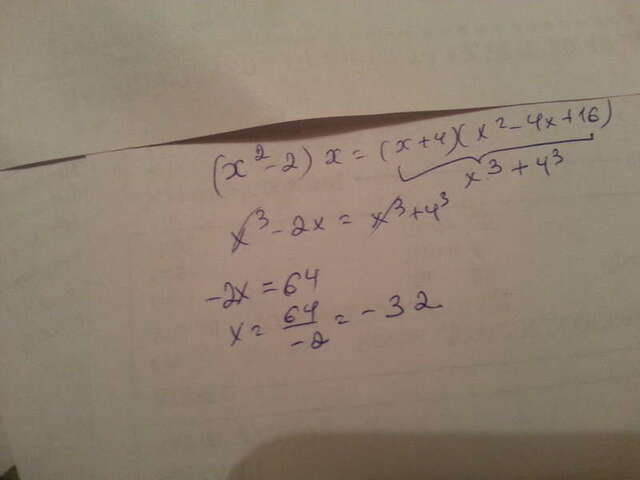 (x² - 2) x = (x+4)(x² - 4x + 16)
x³ + 4³
x³ - 2x = x³ + 4³
-2x = 64
x = 64/-2 = -32